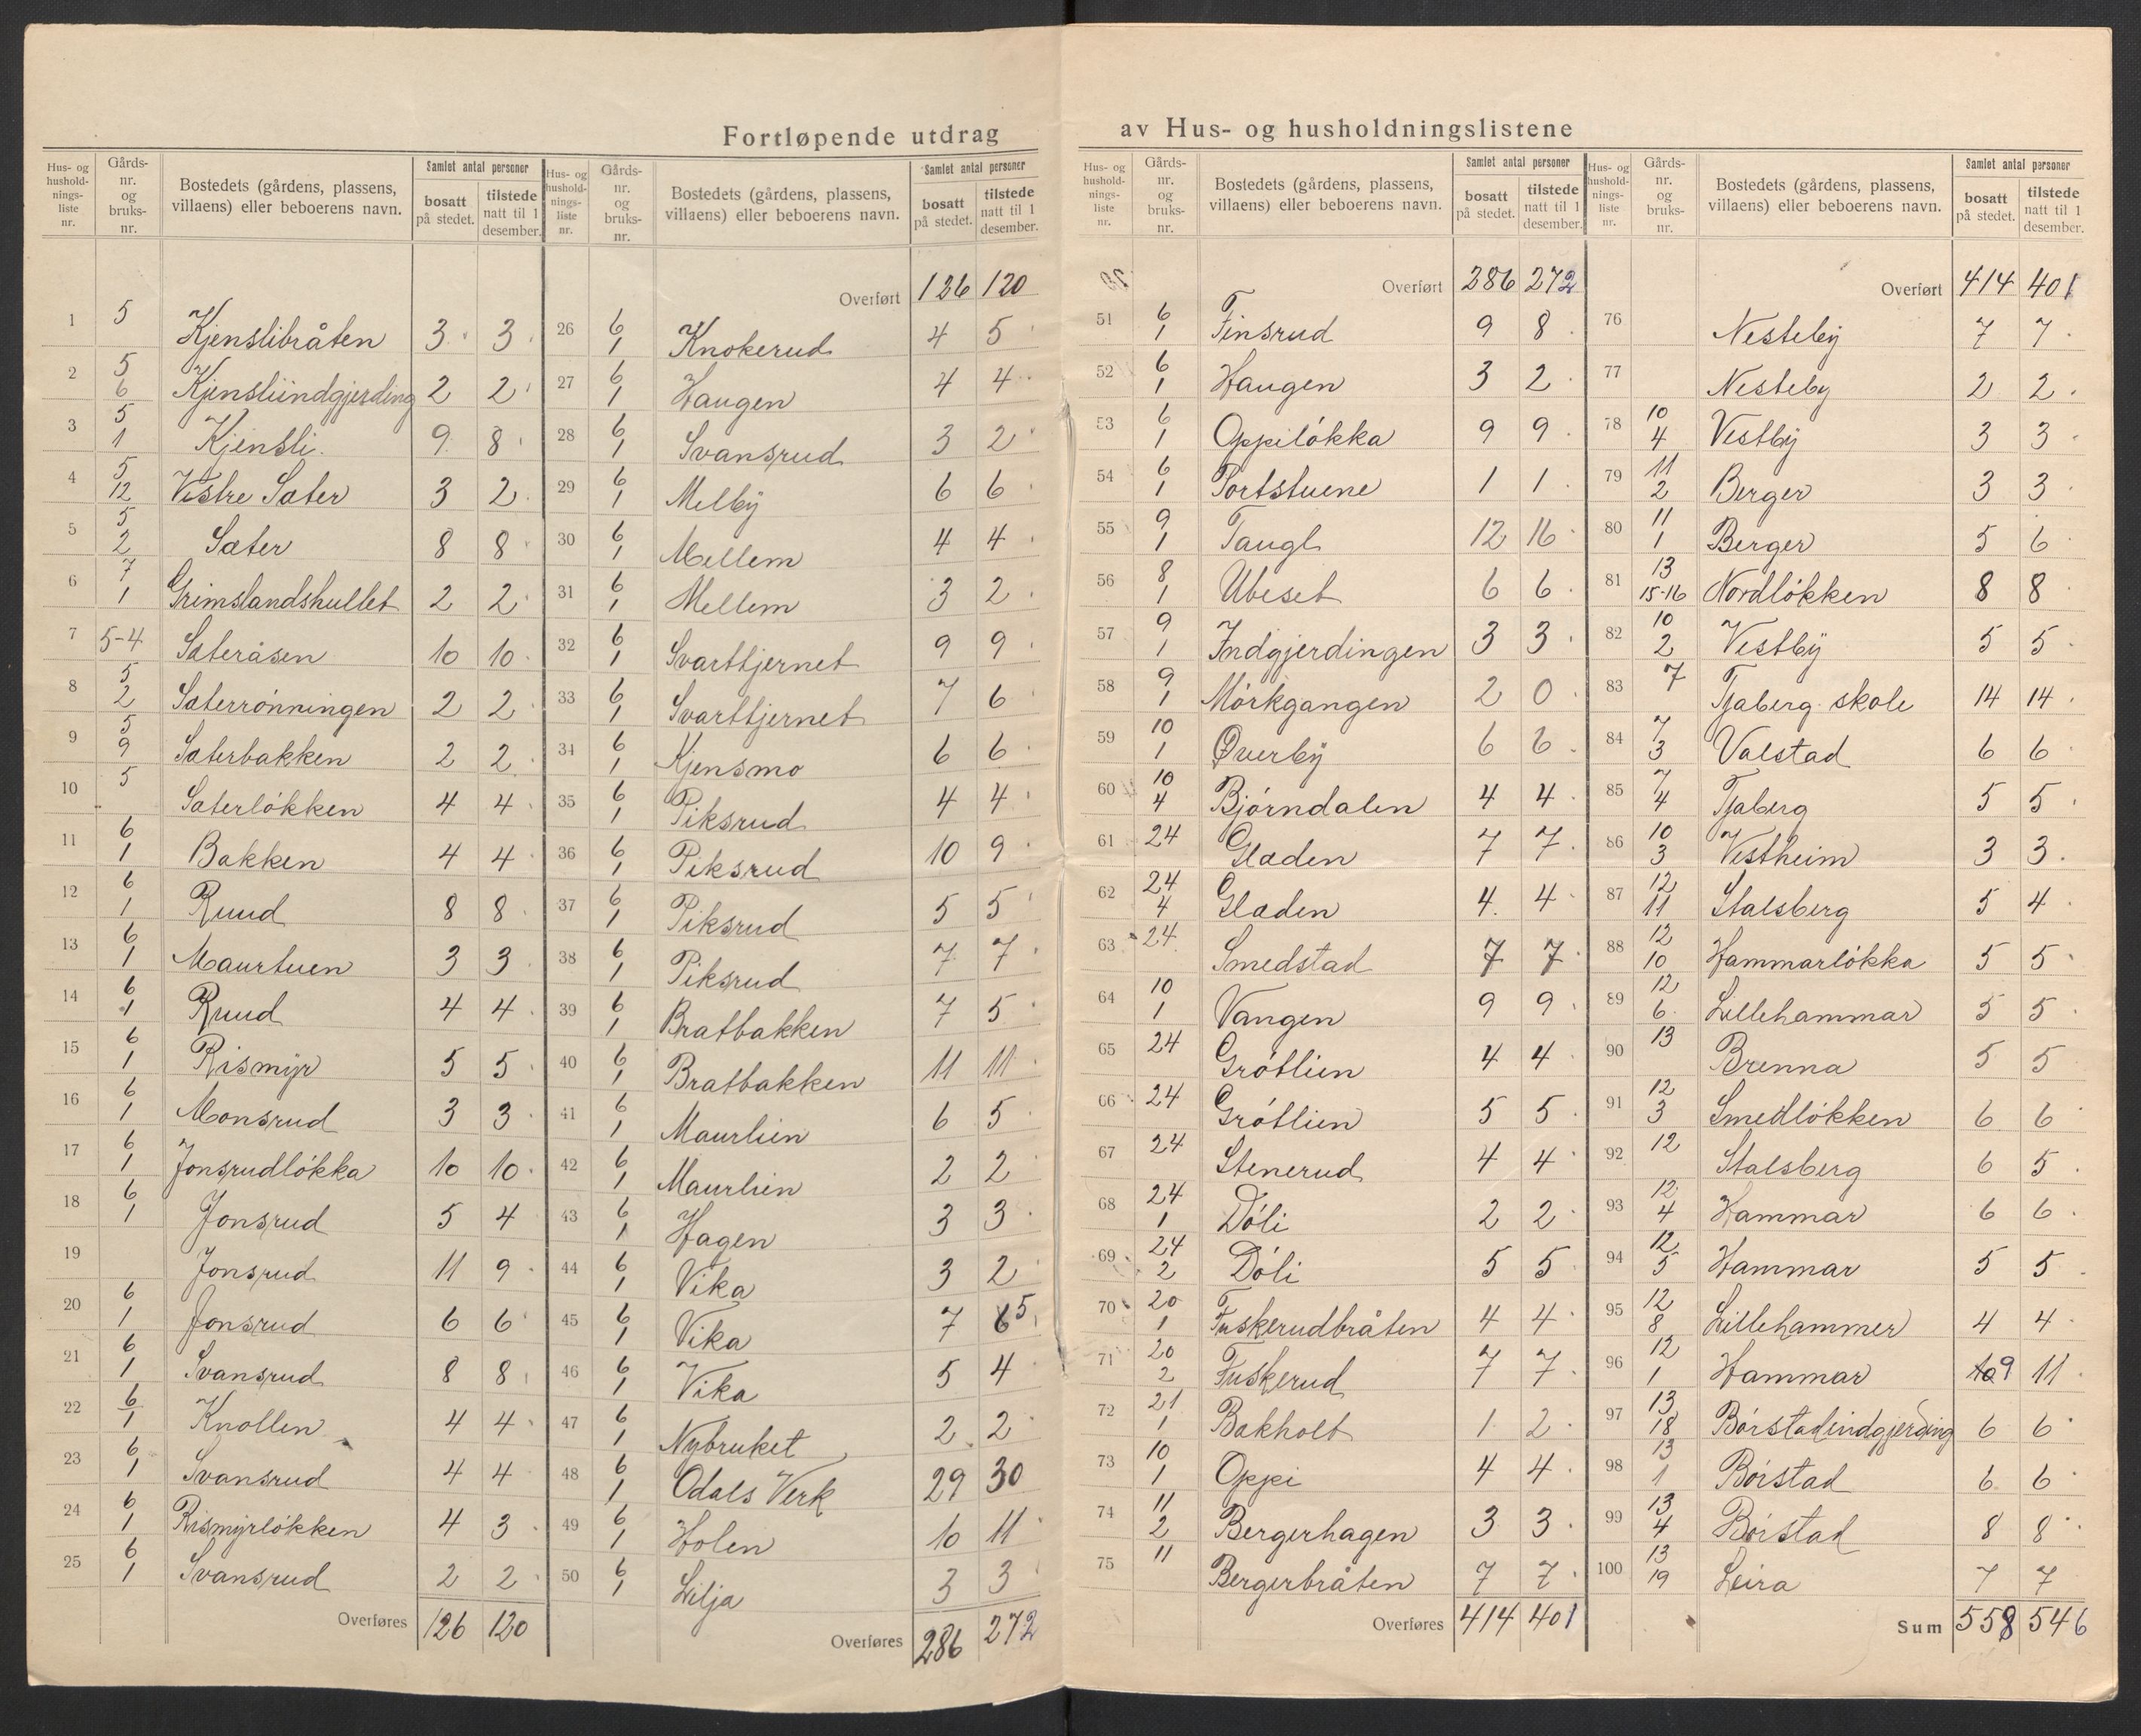 Fortløpende utdrag av Hus- og husholdningslistene
Hus- og hushold-nings-liste nr. | Gårds-nr. og bruks-nr. | Bostedets (gårdens, plassens, villaens) eller beboerens navn. | Samlet antal personer | bosatt på stedet. | tilstede natt til 1 desember.
1 | 5 | Kjenslibråten | 3 | 3
2 | 5 6 | Kjensliindgjerding | 2 | 2
3 | 5 1 | Kjensli | 9 | 8
4 | 5 12 | Vestre Sæter | 3 | 2
5 | 5 2 | Sæter | 8 | 8
6 | 7 1 | Grimslandshullet | 2 | 2
7 | 5-4 | Sæteråsen | 10 | 10
8 | 5 2 | Sæterrønningen | 2 | 2
9 | 5 9 | Sæterbakken | 2 | 2
10 | 5 | Sæterløkken | 4 | 4
11 | 6 1 | Bakken | 4 | 4
12 | 6 1 | Ruud | 8 | 8
13 | 6 1 | Maurtuen | 3 | 3
14 | 6 1 | Ruud | 4 | 4
15 | 6 1 | Rismyr | 5 | 5
16 | 6 1 | Monsrud | 3 | 3
17 | 6 1 | Jonsrudløkka | 10 | 10
18 | 6 1 | Jonsrud | 5 | 4
19 | Jonsrud | 11 | 9
20 | 6 1 | Jonsrud | 6 | 6
21 | 6 1 | Svansrud | 8 | 8
22 | 6 1 | Knollen | 4 | 4
23 | 6 1 | Svansrud | 4 | 4
24 | 6 1 | Rismyrløkken | 4 | 3
25 | 6 1 | Svansrud | 2 | 2
Overføres | 126 | 120
Hus- og hushold-nings-liste nr. | Gårds-nr. og bruks-nr. | Bostedets (gårdens, plassens, villaens) eller beboerens navn. | Samlet antal personer | bosatt på stedet. | tilstede natt til 1 desember.
Overført | 126 | 120
26 | 6 1 | Knokerud | 4 | 5
27 | 6 1 | Haugen | 4 | 4
28 | 6 1 | Svansrud | 3 | 2
29 | 6 1 | Melby | 6 | 6
30 | 6 1 | Mellem | 4 | 4
31 | 6 1 | Mellem | 3 | 2
32 | 6 1 | Svarttjernet | 9 | 9
33 | 6 1 | Svarttjernet | 7 | 6
34 | 6 1 | Kjensmo | 6 | 6
35 | 6 1 | Piksrud | 4 | 4
36 | 6 1 | Piksrud | 10 | 9
37 | 6 1 | Piksrud | 5 | 5
38 | 6 1 | Piksrud | 7 | 7
39 | 6 1 | Bratbakken | 7 | 5
40 | 6 1 | Bratbakken | 11 | 11
41 | 6 1 | Maurlien | 6 | 5
42 | 6 1 | Maurlien | 2 | 2
43 | 6 1 | Hagen | 3 | 3
44 | 6 1 | Vika | 3 | 2
45 | 6 1 | Vika | 7 | 5
46 | 6 1 | Vika | 5 | 4
47 | 6 1 | Nybruket | 2 | 2
48 | 6 1 | Odals Verk | 29 | 30
49 | 6 1 | Holen | 10 | 11
50 | 6 1 | Lilja | 3 | 3
Overføres | 286 | 272
Hus- og hushold-nings-liste nr. | Gårds-nr. og bruks-nr. | Bostedets (gårdens, plassens, villaens) eller beboerens navn. | Samlet antal personer | bosatt på stedet. | tilstede natt til 1 desember.
Overført | 286 | 272
51 | 6 1 | Finsrud | 9 | 8
52 | 6 1 | Haugen | 3 | 2
53 | 6 1 | Oppiløkka | 9 | 9
54 | 6 1 | Portstuene | 1 | 1
55 | 9 1 | Taugl | 12 | 16
56 | 8 1 | Ubeset | 6 | 6
57 | 9 1 | Indgjerdingen | 3 | 3
58 | 9 1 | Mørkgangen | 2 | 0
59 | 10 1 | Øverby | 6 | 6
60 | 10 4 | Bjørndalen | 4 | 4
61 | 24 | Glæden | 7 | 7
62 | 24 4 | Glæden | 4 | 4
63 | 24 | Smedstad | 7 | 7
64 | 10 1 | Vangen | 9 | 9
65 | 24 | Grøtlien | 4 | 4
66 | 24 | Grøtlien | 5 | 5
67 | 24 | Stenerud | 4 | 4
68 | 24 1 | Døli | 2 | 2
69 | 24 2 | Døli | 5 | 5
70 | 20 1 | Fuskerudbråten | 4 | 4
71 | 20 2 | Fuskerud | 7 | 7
72 | 21 1 | Bakholt | 1 | 2
73 | 10 1 | Oppi | 4 | 4
74 | 11 2 | Bergerhagen | 3 | 3
75 | 11 | Bergerbråten | 7 | 7
Overføres | 414 | 401
Hus- og hushold-nings-liste nr. | Gårds-nr. og bruks-nr. | Bostedets (gårdens, plassens, villaens) eller beboerens navn. | Samlet antal personer | bosatt på stedet. | tilstede natt til 1 desember.
Overført | 414 | 401
76 | Nesteby | 7 | 7
77 | Nesteby | 2 | 2
78 | 10 4 | Vestby | 3 | 3
79 | 11 2 | Berger | 3 | 3
80 | 11 1 | Berger | 5 | 6
81 | 13 15-16 | Nordløkken | 8 | 8
82 | 10 2 | Vestby | 5 | 5
83 | 7 | Tjaberg skole | 14 | 14
84 | 7 3 | Valstad | 6 | 6
85 | 7 4 | Tjaberg | 5 | 5
86 | 10 3 | Vestheim | 3 | 3
87 | 12 11 | Stalsberg | 5 | 4
88 | 12 10 | Hammarløkka | 5 | 5
89 | 12 6 | Lillehammar | 5 | 5
90 | 13 | Brenna | 5 | 5
91 | 12 3 | Smedløkken | 6 | 6
92 | 12 | Stalsberg | 6 | 5
93 | 12 4 | Hammar | 6 | 6
94 | 12 5 | Hammar | 5 | 5
95 | 12 8 | Lillehammer | 4 | 4
96 | 12 1 | Hammar | 9 | 11
97 | 13 18 | Børstadindgjerding | 6 | 6
98 | 13 1 | Børstad | 6 | 6
99 | 13 4 | Børstad | 8 | 8
100 | 13 19 | Leira | 7 | 7
Sum | 558 | 546